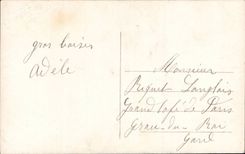 gros baisers
Adèle
Monsieur
Riquet Langlais
Grand Café de Paris
Grau-du-Roi
Gard